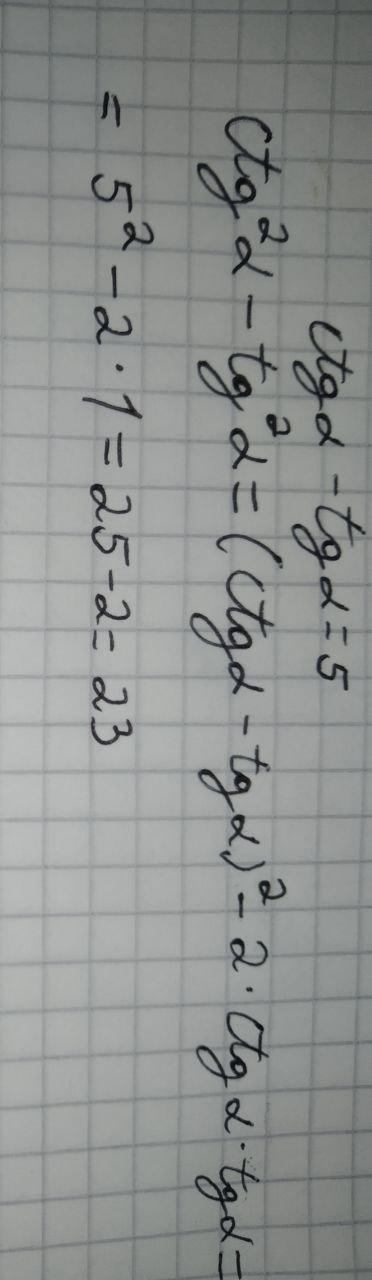 ctgα - tgα = 5
ctg²α - tg²α = (ctgα - tgα)² - 2 · ctgα · tgα =
= 5² - 2 · 1 = 25 - 2 = 23